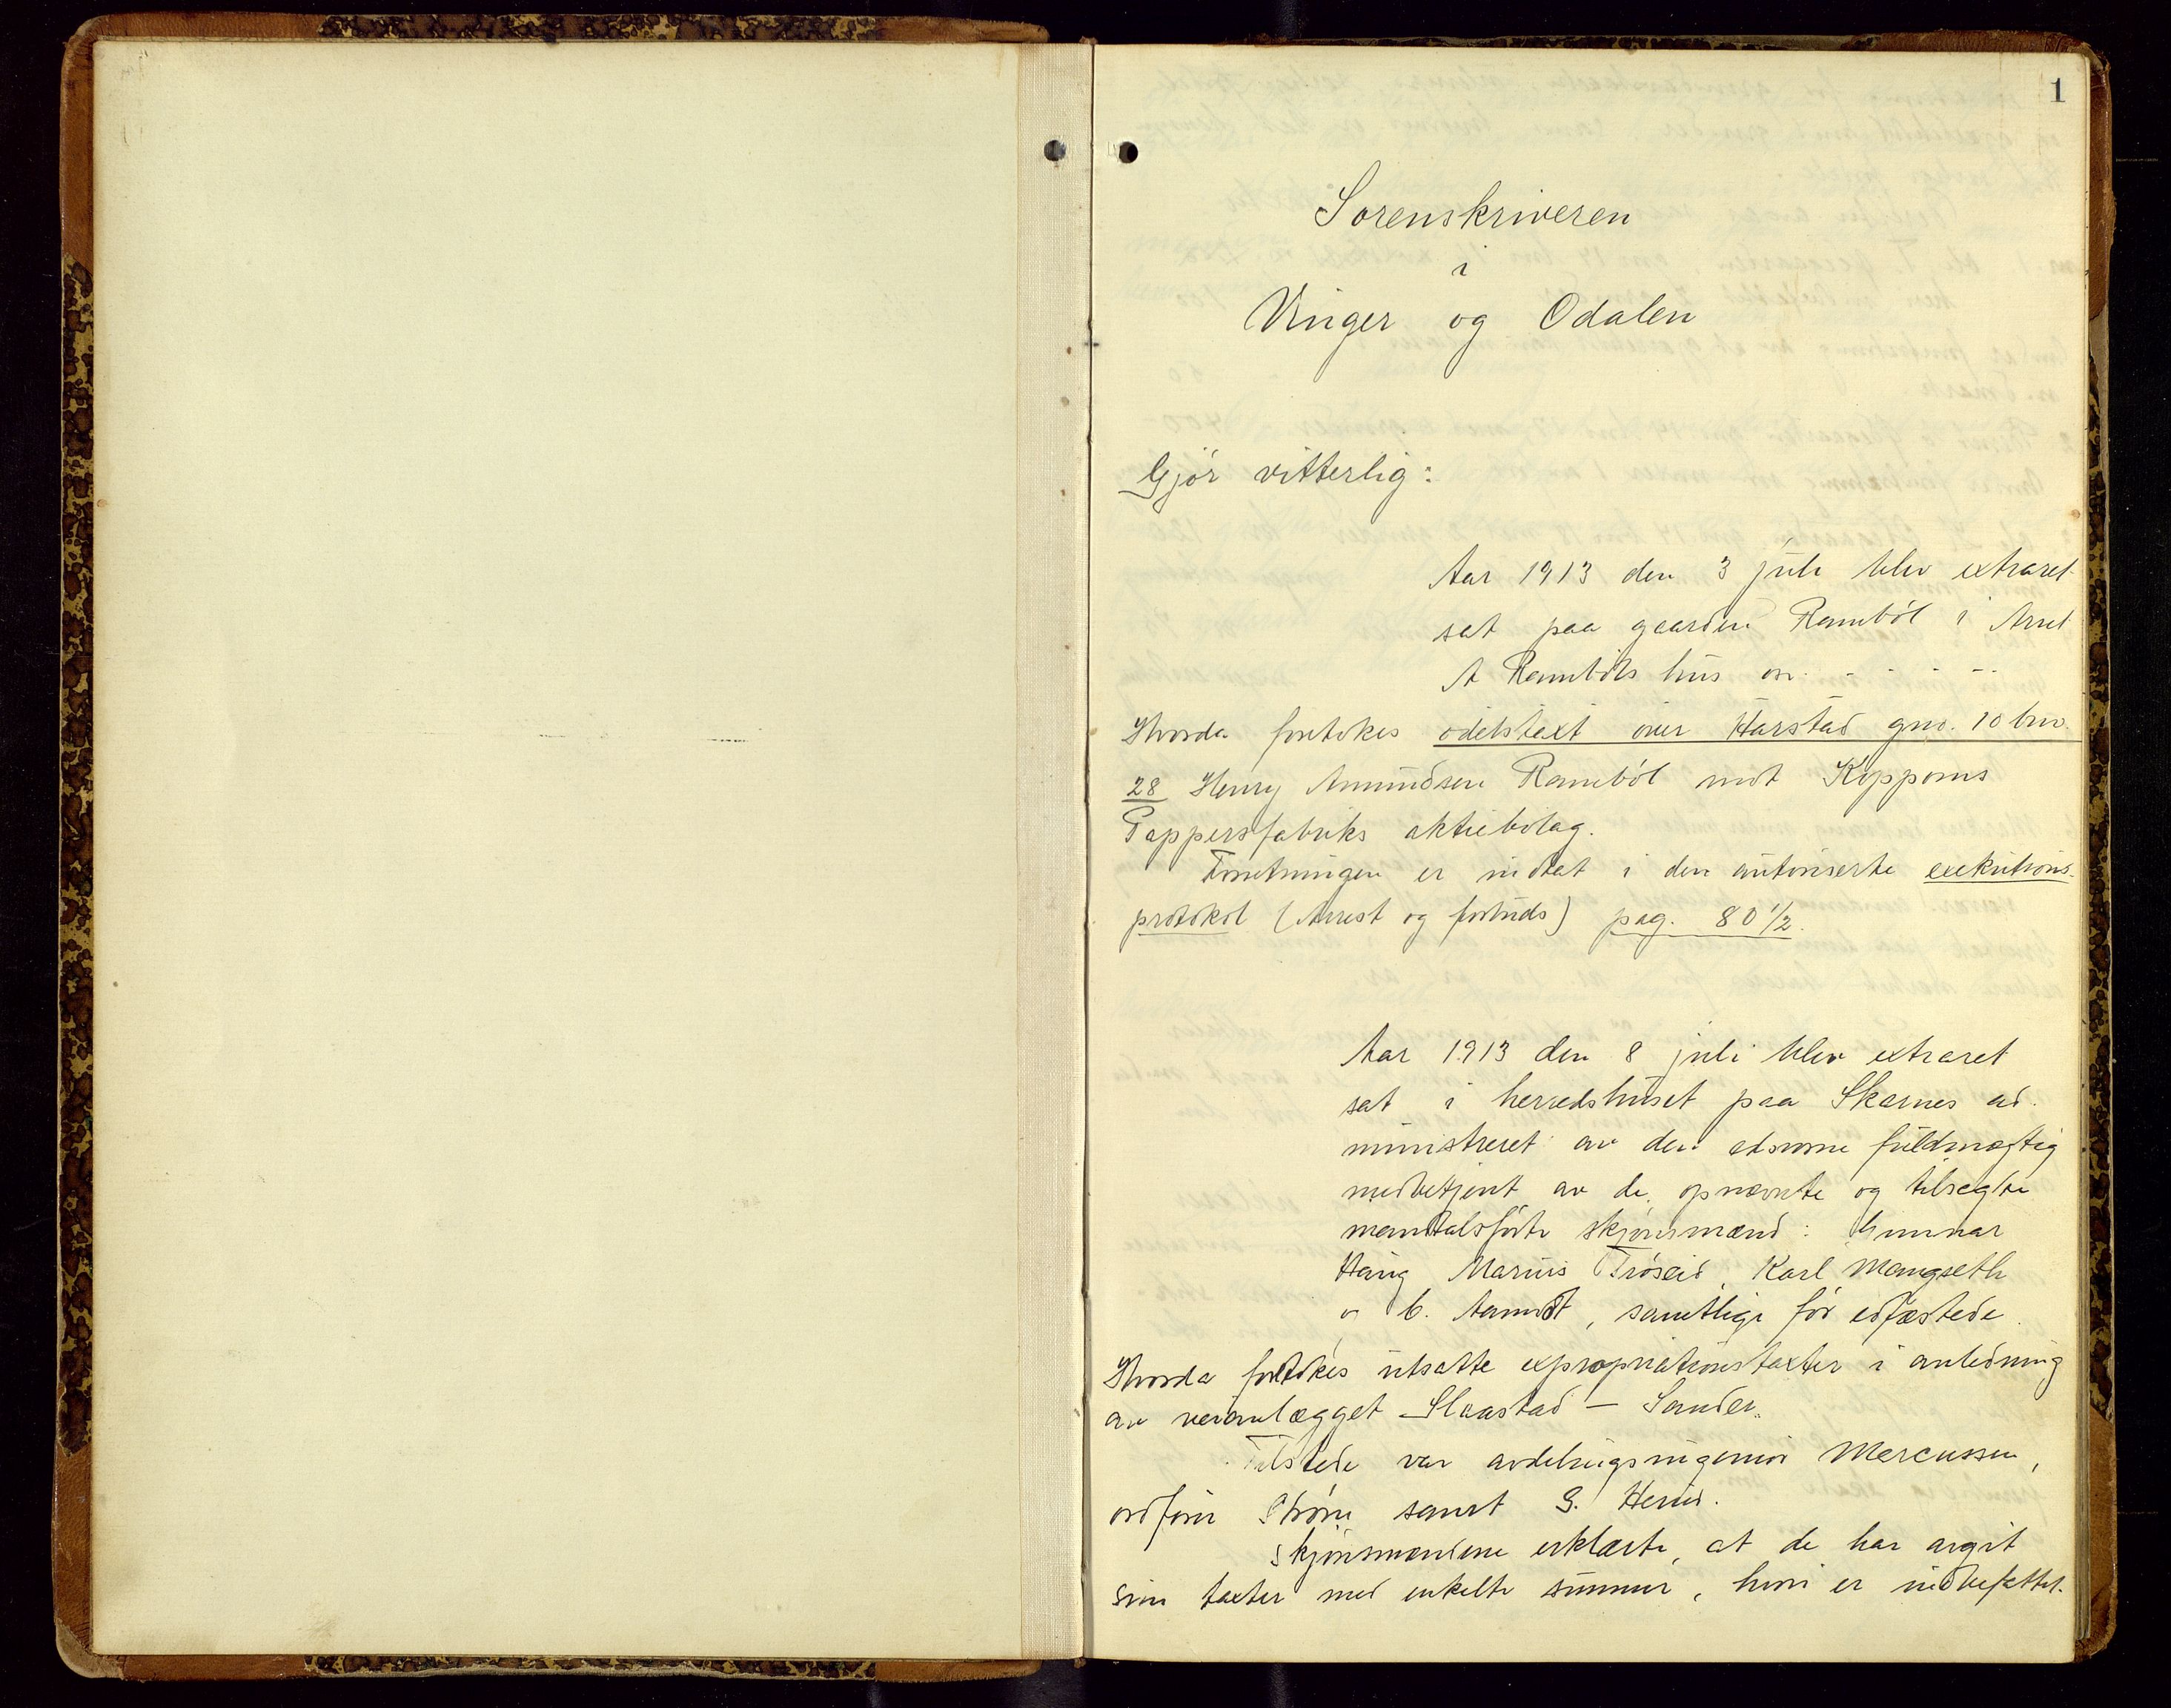 1
Sorenskriveren
i
Vinger og Odalen
Gjör vitterlig:
Aar 1913 den 3 juli blev extraret
sat paa gaarden Ramböl i Arnt
A Ramböls hus osv. - - - - -
Hvorda foretokes odelstaxt over Harstad gno. 10 bno.
28 Henry Amundsen Ramböl mot Koppoms
Pappersfabriks aktiebolag.
Forretningen er indtat i den autoriserte exekutions-
protokol (Arrest og forbuds) pag. 80 1/2.
Aar 1913 den 8 juli blev extraret
sat i herredshuset paa Skarnes ad-
ministreret av den edsvorne fuldmægtig
medbetjent av de opnævnte og tilsagte
mandtalsförte skjönsmænd: Gunnar
Haug Marius Tröseid, Karl Mangseth
og C. Aamodt, samtlige för edfæstede.
Hvorda foretokes utsatte expropriationstaxter i anledning
av veianlægget Slaastad - Sander.
Tilstede var avdelingsingeniör Marcussen,
ordförer Ström samt G. Hernes.
Skjönsmændene erklærte, at de har avgit
sine taxter med enkelte summer, hvori er indbefattet